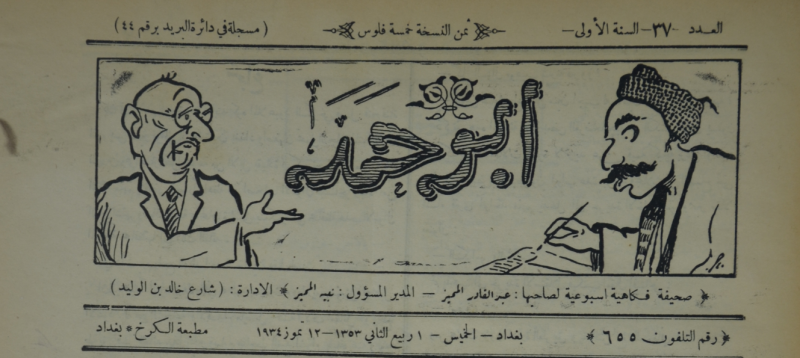 العدد -٣٧- السنة الأولى- ثمن النسخة خمسة فلوس (مسجلة في دائرة البريد برقم ٤٤)
ابو حمد
صحيفة فكاهية اسبوعية لصاحبها: عبدالقادر المميز - المدير المسؤول: نبيه المميز الادارة: (شارع خالد بن الوليد)
رقم التلفون ٦٥٥ بغداد- الخميس- ١ ربيع الثاني ١٣٥٣-١٢ تموز ١٩٣٤ مطبعة الكرخ٥ بغداد